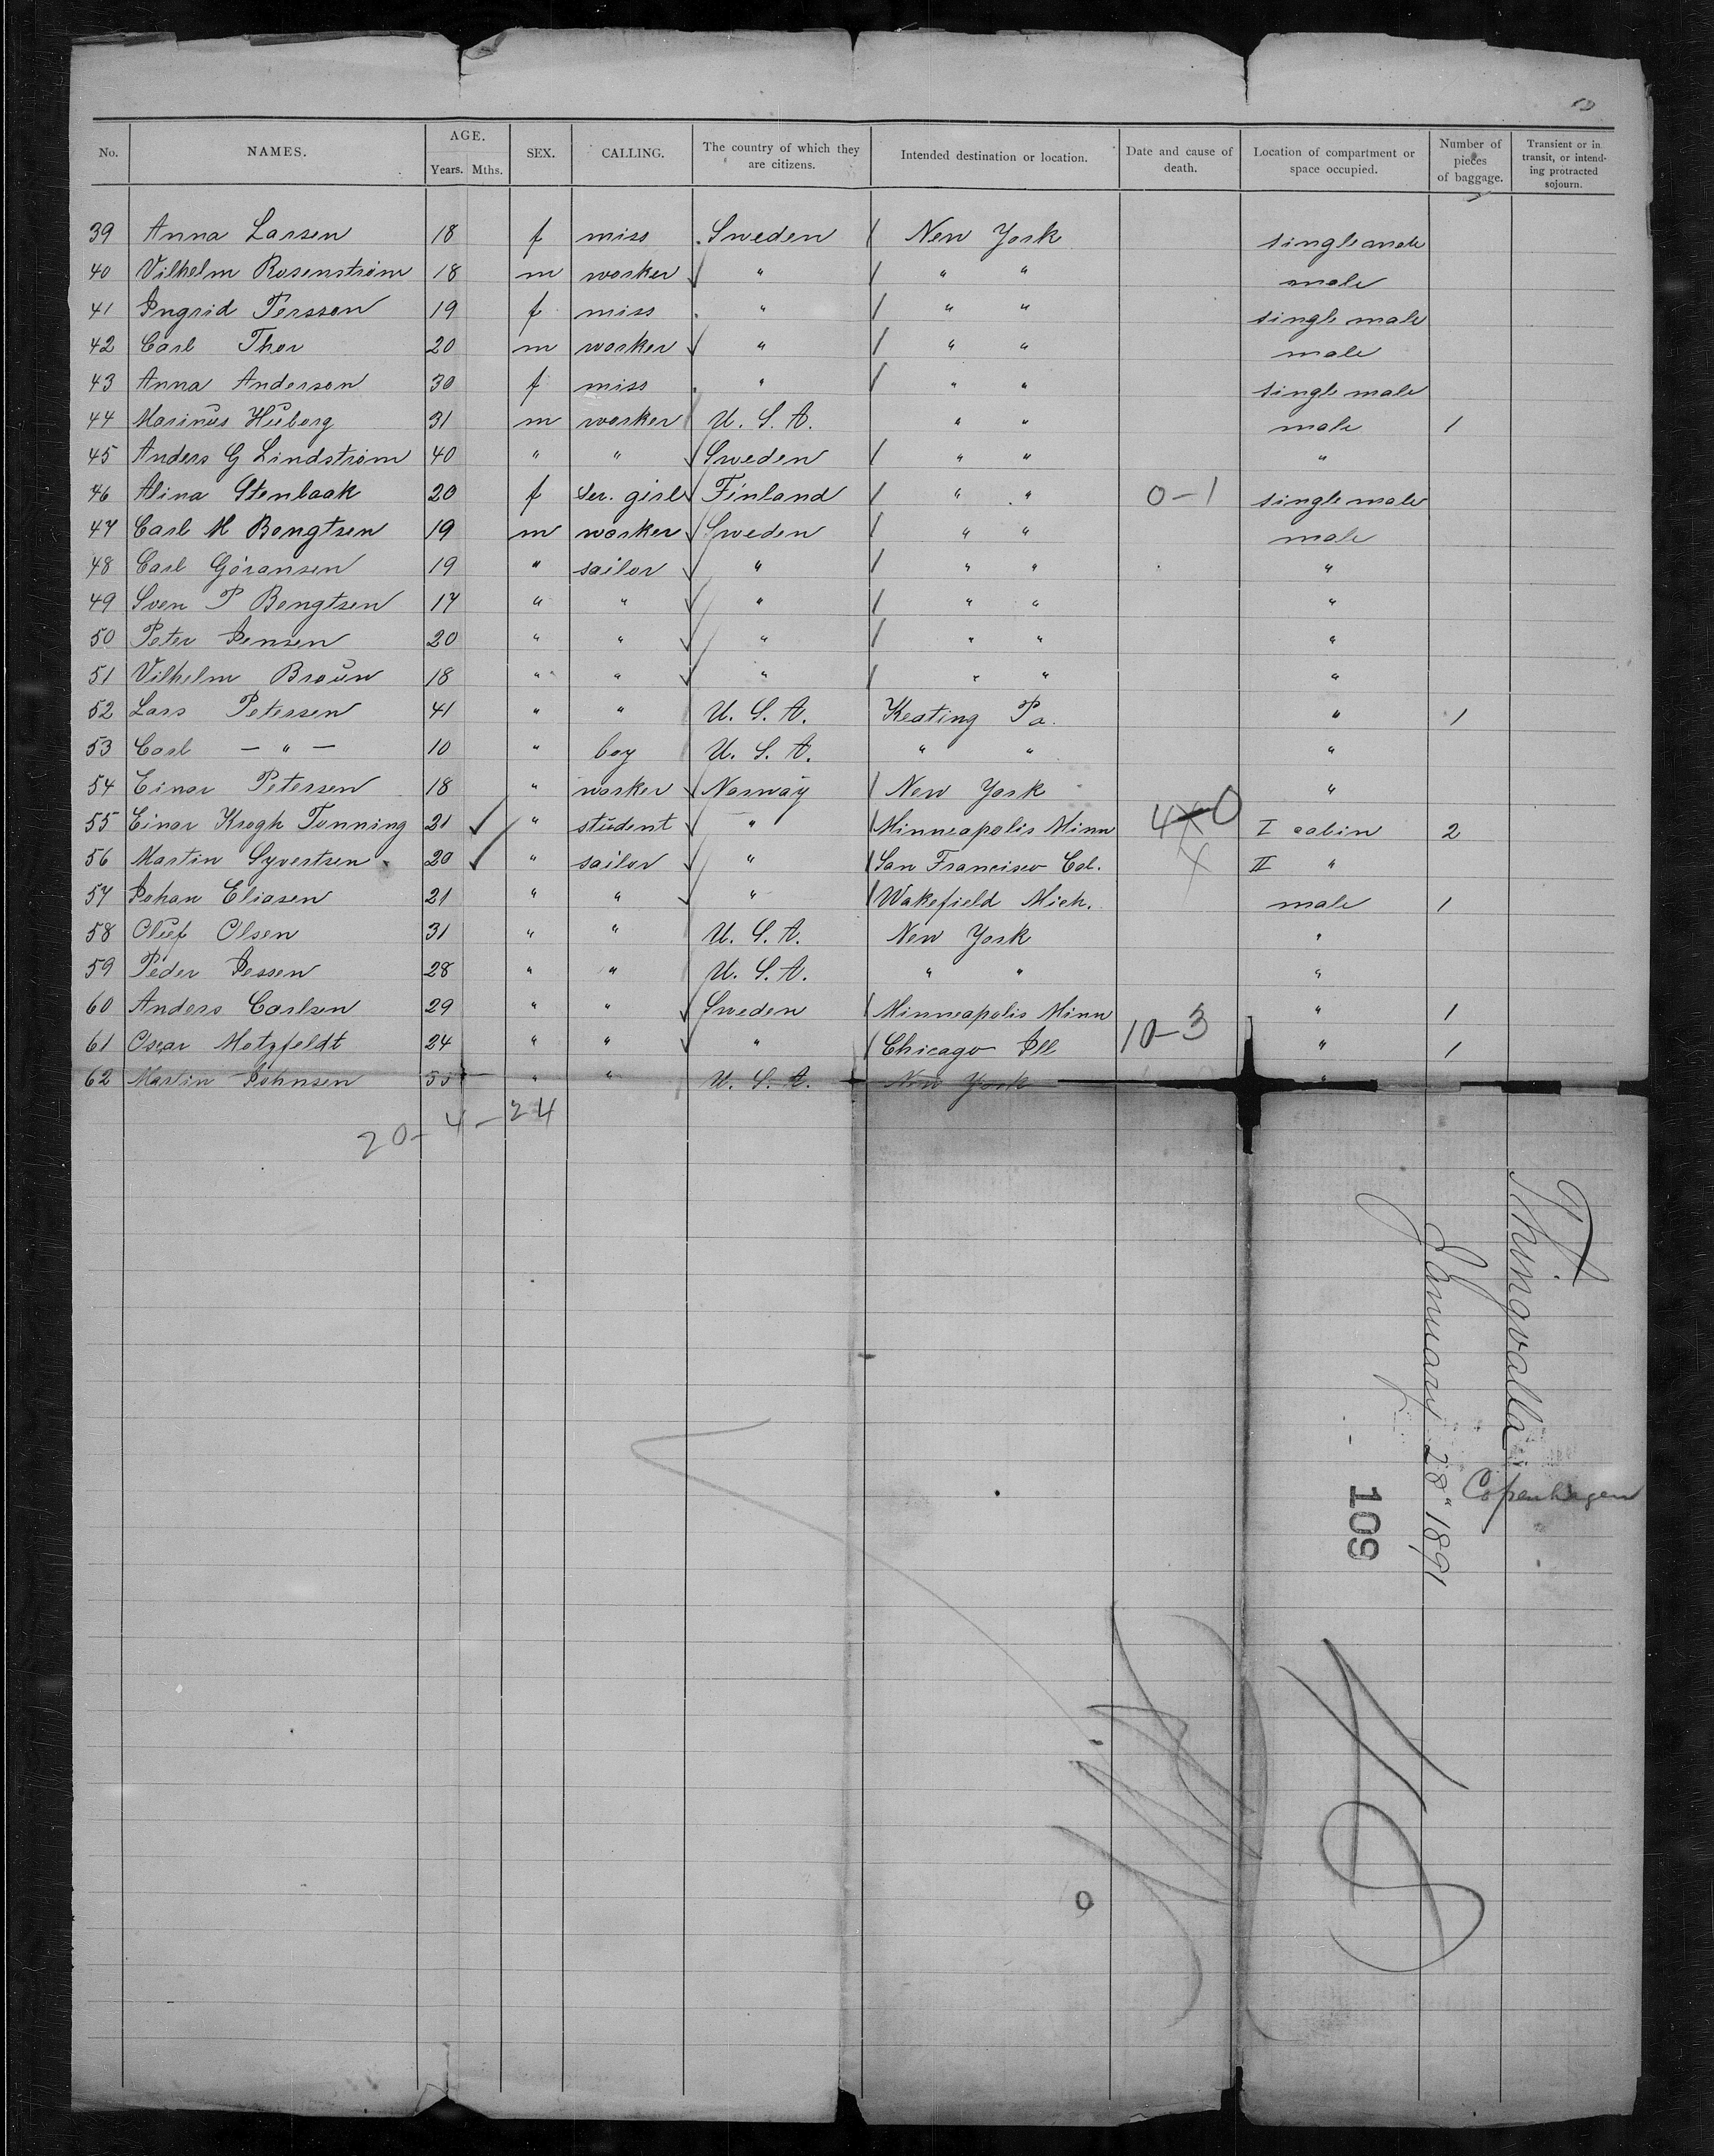 No. NAMES. AGE. Years. Mths. SEX. CALLING. The country of which they are citizens. Intended destination or location. Date and cause of death. Location of compartment or space occupied. Number of pieces of baggage. Transient or in transit, or intending protracted sojourn.
39 Anna Larsen 18 f miss Sweden / New York
40 Vilhelm Rosenström 18 m worker " / " " male
41 Ingrid Persson 19 f miss " / " " single male
42 Carl Thor 20 m worker " / " " male
43 Anna Anderson 30 f miss " / " " single male
44 Marinus Huborg 31 m worker U. S. A. " " male 1
45 Anders G Lindström 40 " " Sweden / " " "
46 Alina Stenbaak 20 f ser. girl Finland / " " 0-1 single male
47 Carl M Bengtsen 19 m worker Sweden / " " male
48 Carl Göransen 19 " sailor " / " " "
49 Sven P Bengtsen 17 " " " / " " "
50 Peter Jensen 20 " " " / " " "
51 Vilhelm Braun 18 " " " / " " "
52 Lars Petersen 41 " " U. S. A. Keating Pa. " 1
53 Carl — " — 10 " boy U. S. A. " " "
54 Einar Petersen 18 " worker Norway / New York "
55 Einar Krogh Tonning 21 ✓ " student " / Minneapolis Minn I cabin 2
56 Martin Syvertsen 20 ✓ " sailor " / San Francisco Cal. II "
57 Johan Eliasen 21 " " " / Wakefield Mich. male 1
58 Oluf Olsen 31 " " U. S. A. New York "
59 Peder Jessen 28 " " U. S. A. " " "
60 Anders Carlsen 29 " " Sweden / Minneapolis Minn " 1
61 Oscar Motzfeldt 24 " " " / Chicago Ill 10-3 " 1
62 Martin Johnsen " " U. S. A. New York "
20-4-24
Thingvalla
Copenhagen
January 28" 1891
109